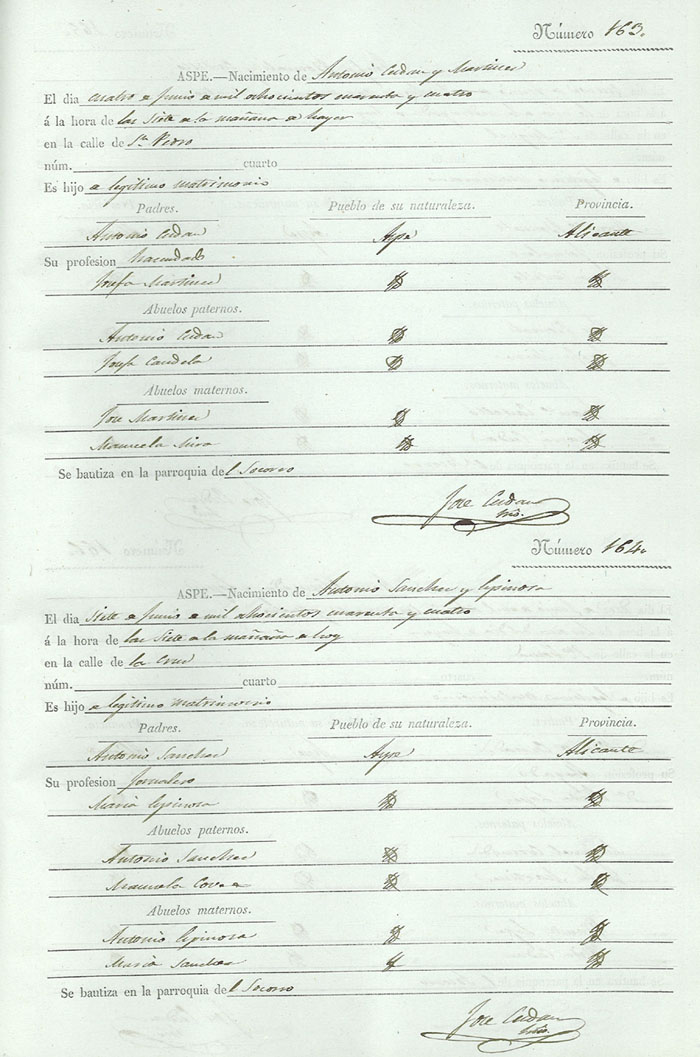 Número 163.
ASPE.—Nacimiento de Antonio Cerdan y Martinez
El dia cuatro de Junio de mil ochocientos cuarenta y cuatro
á la hora de las siete de la mañana de hayer
en la calle de Sn. Pedro
núm. cuarto
Es hijo de legitimo matrimonio
Padres. Pueblo de su naturaleza. Provincia.
Antonio Cerdan Aspe Alicante
Su profesion hacendado
Josefa Martinez
Abuelos paternos.
Antonio Cerdan
Josefa Candela
Abuelos maternos.
Jose Martinez
Manuela Mira
Se bautiza en la parroquia del Socorro
Jose Cerdan
Número 164.
ASPE.—Nacimiento de Antonio Sanchez y Espinosa
El dia siete de Junio de mil ochocientos cuarenta y cuatro
á la hora de las siete de la mañana de hoy
en la calle de la Cruz
núm. cuarto
Es hijo de legitimo matrimonio
Padres. Pueblo de su naturaleza. Provincia.
Antonio Sanchez Aspe Alicante
Su profesion Jornalero
Maria Espinosa
Abuelos paternos.
Antonio Sanchez
Manuela
Abuelos maternos.
Antonio Espinosa
Maria Sanchez
Se bautiza en la parroquia del Socorro
Jose Cerdan